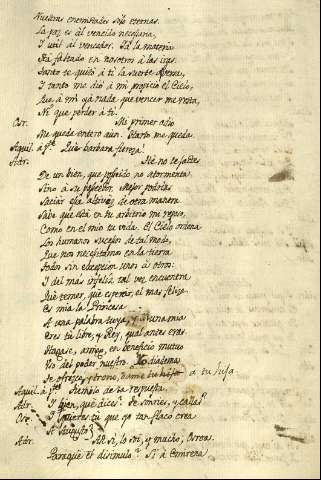 Nuestras enemistades sean eternas.
La paz es al vencido necesaria,
I util al vencedor. Ya la materia
Há faltado en nosotros á las iras.
Tanto te quitó á ti la suerte
I tanto me dió á mi propicio el Cielo,
Que á mi yá nada que vencer me resta,
Ni que perder á ti.
Osr. Mi primer odio
Me queda entero aun. Harto me queda.
Aquil. á pte. Que barbara fiereza!
Adr. No te jactes
De un bien, que poseido no atormenta
Sino á su poseedor. Mejor podrias
Saciar esa altivez de otra manera
Sabe que está en tu arbitrio mi reposo,
Como en el mio tu vida. El Cielo ordena
Los humanos sucesos de tal modo,
Que nos necesitamos en la tierra
Todos sin excepcion unos á otros:
I el mas infeliz tal vez encuentra
Que temer, que esperar, el mas feliz.
Es mia la Princesa
A una palabra tuya, y á una mia
Eres tu libre, y Rey, qual antes eras.
Hagase, amigo, en beneficio mutuo
Uso del poder nuestro. Yo diadema
Te ofrezco, y trono, dame tu hija
á tu hija
Aquil. á pte. Tiemblo de la respuesta.
Adr. I bien, que dices? Te sonries, y callas?
Osr. I quieres tu que yo tan flaco crea
A Augusto?
Adr. Ah si, lo soi, y mucho, Osroas.
Paraque el disimulo? Si á